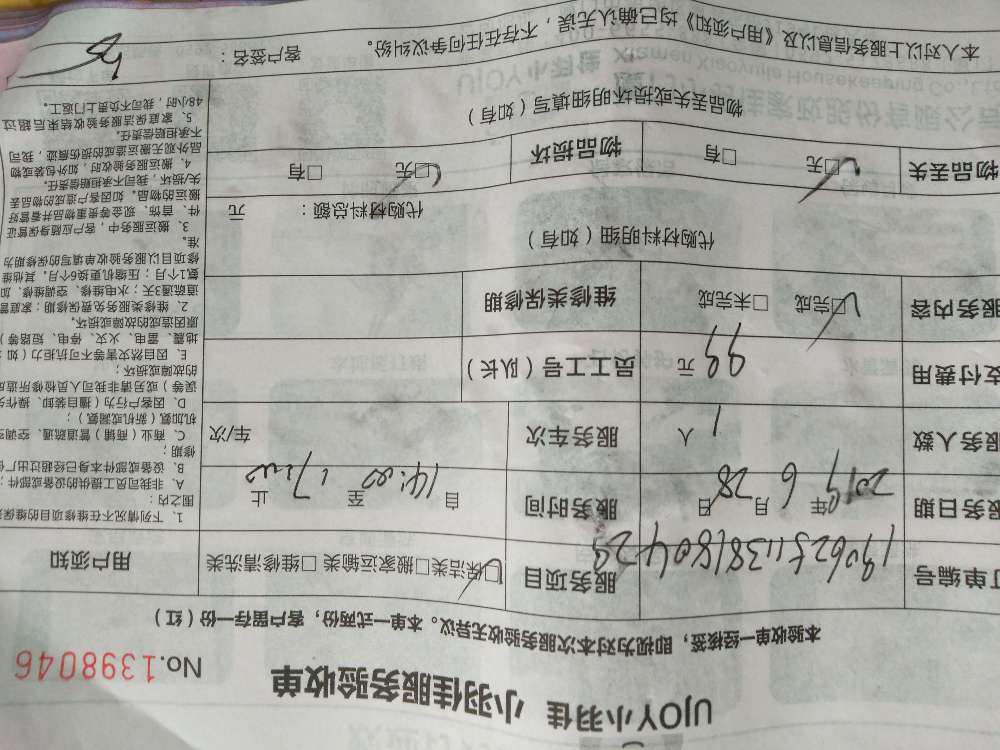 UJOY小羽佳 小羽佳服务验收单
No.1398046
本验收单一经核签，即视为对本次服务验收无异议。本单一式两份，客户留存一份（红）
订单编号
服务项目 ☑保洁类□搬家运输类 □维修清洗类
用户须知
服务日期 2019年 6 月 28 日
服务时间 自 14:00 至 17:00 止
服务人数 1 人
服务车次 车/次
支付费用 99 元
员工工号（队长）
服务内容 ☑完成 □未完成
维修类保修期
代购材料明细（如有）
代购材料总额： 元
物品丢失 ☑无 □有
物品损坏 ☑无 □有
物品丢失或损坏明细填写（如有）
1、下列情况不在维修项目的保
围之内：
A、非我司员工提供的设备或部件；
B、设备或部件本身已经超过出厂
修期；
C、商业（商铺）管道疏通、空调
机加氨（新机或漏氨）；
D、因客户行为（擅自装卸、操作失
误等）或另请非我司人员检修所造成
的故障或损坏；
E、因自然灾害等不可抗拒力（如：
地震、雷电、火灾、停电、短路等）
原因造成的故障或损坏。
2、维修类服务免费保修期：家庭管
道疏通3天；水电维修、空调维修、加
氨1个月；压缩机更换6个月。其他维
修项目以服务验收单填写的保修期为
准。
3、搬运服务中，客户应随身保管证
件、首饰、现金等贵重物品并看管好
搬运的物品。如因客户造成的物品丢
失/损坏，我司不承担赔偿责任。
4、搬运服务验收时，如外包装或物
品外观无搬运造成的损伤痕迹，我司
不承担赔偿责任。
5、家庭保洁服务验收结束后超过
48小时，我司不负责上门返工。
本人对以上服务信息以及《用户须知》均已确认无误，不存在任何争议纠纷。 客户签名：